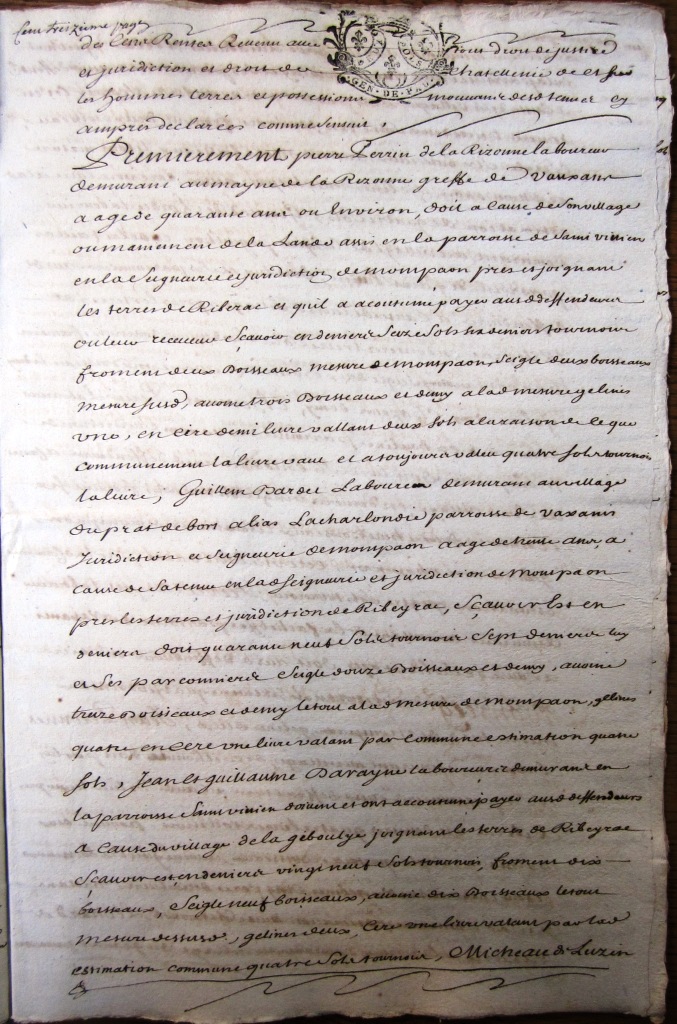 Cent treizieme page
des Cens Rentes Revenu avec tout droit de justice
et juridiction et droit de Chatelenie de et sur
les hommes terres et possessions mouvans desd tenues cy
amprés declarées comme sensuit.
GEN·DE·PAU
Premierement pierre Perrin de la Rizonne laboureur
demurant au mayne de la Rizonne greffe de Vauxains
aagé de quarante ans ou Environ, doit a Cause de Son village
ou manement de la Lande assis en la parroisse de Saint vivien
en la Seigneurie et juridiction de mompaon prés et joignant
les terres de Riberac et quil a acoutumé payer ausd deffendeurs
ou leur receveur Scavoir en deniers Seize Sols six deniers tournois
froment deux Boisseaux mesure de mompaon, Seigle deux boisseaux
mesure susd, avoine trois Boisseaux et demy a lad mesure gelines
une, en Cire demi livre vallant deux Sols a la raison de ce que
communement la livre vaut et a toujours valeu quatre sols tournois
la livre, Guillem Dardet Laboureur demurant au village
du prat de bort alias Lacharlondie parroisse de vaxains
Juridiction et Seigneurie de mompaon aagé de trente ans, a
cause de Sa tenue en lad Seigneurie et juridiction de mompaon
prés les terres et juridiction de Ribeyrac, Scavoir Est en
deniers doit quarante neuf Sols tournois Sept deniers luy
et Ses parconniers Seigle douze Boisseaux et demy, avoine
treize Boisseaux et demy le tout a lad mesure de mompaon, gelines
quatre en Cere une livre valant par Commune estimation quatre
sols, Jean Et guillaume Darayne laboureurs demurant en
la parroisse Saint vivien doivent et ont accoutumé payer ausd deffendeurs
a Cause du village de la geboulye joignant les terres de Ribeyrac
Scavoir est en deniers vingt neuf Sols tournois, froment dix
boisseaux, Seigle neuf boisseaux, avoine dix Boisseaux le tout
mesure dessusd, gelines deux, Cire une livre valant par lad
estimation commune quatre Sols tournois, Micheau de Luzin